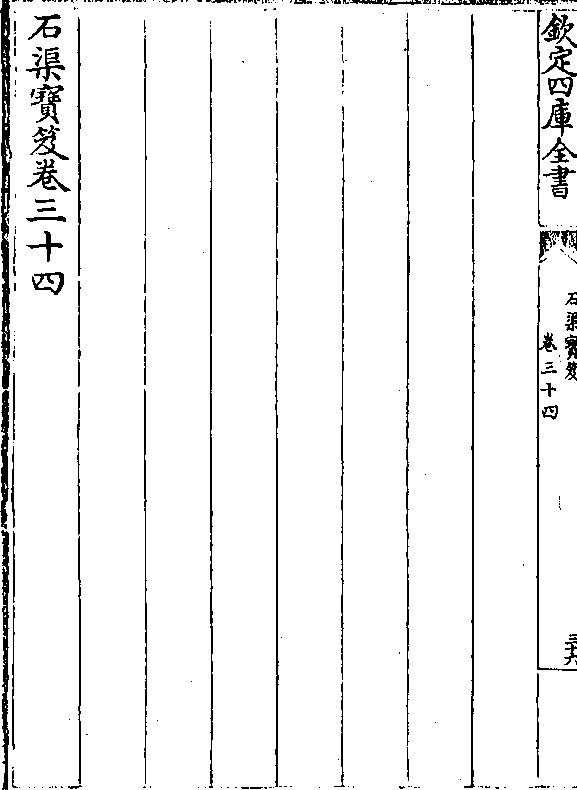 欽定四庫全書
石渠寶笈
卷三十四
石渠寶笈卷三十四